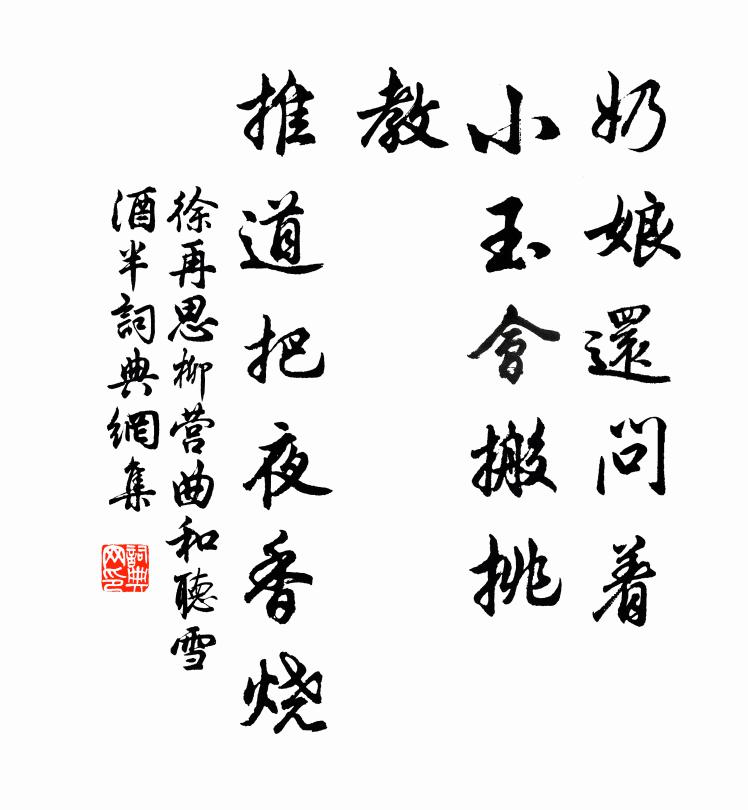 奶娘還問着
小玉會搬挑
教
推道把夜香燒
徐再思柳营曲和聽雪
酒半詞典網集
詞典
网印